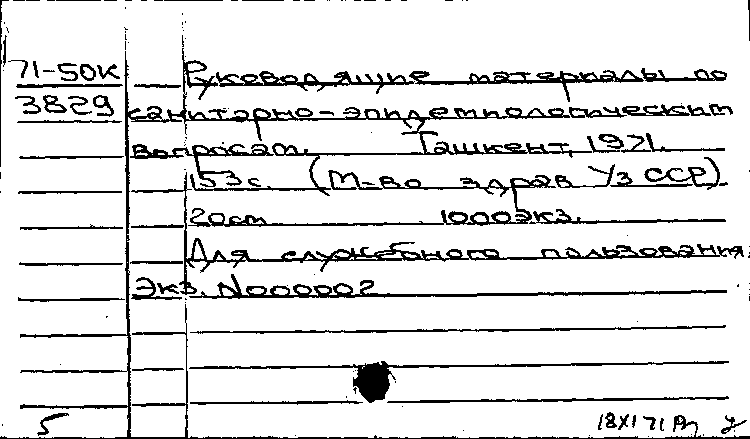 71-50к Руководящие материалы по
3829 санитарно-эпидемиологическим
вопросам. Ташкент, 1971.
153с. (М-во здрав УзССР)
20см 1000экз.
Для служебного пользования
Экз. №000002
5 18XI 71